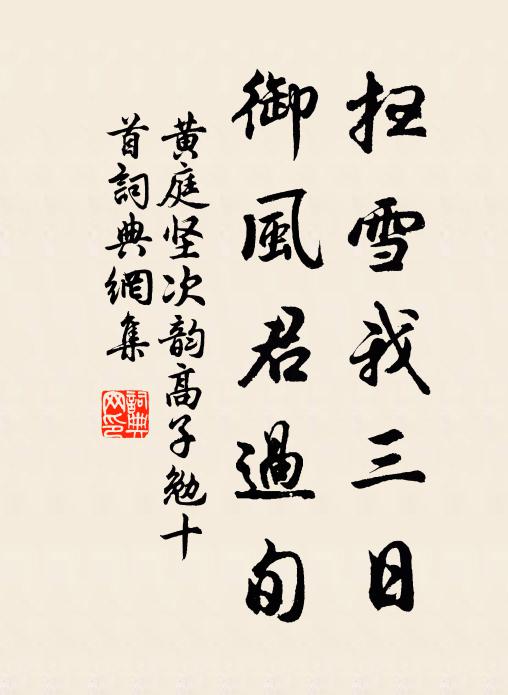 扫雪我三日
御風君過旬
黄庭坚次韵高子勉十
首詞典網集
詞典
网印